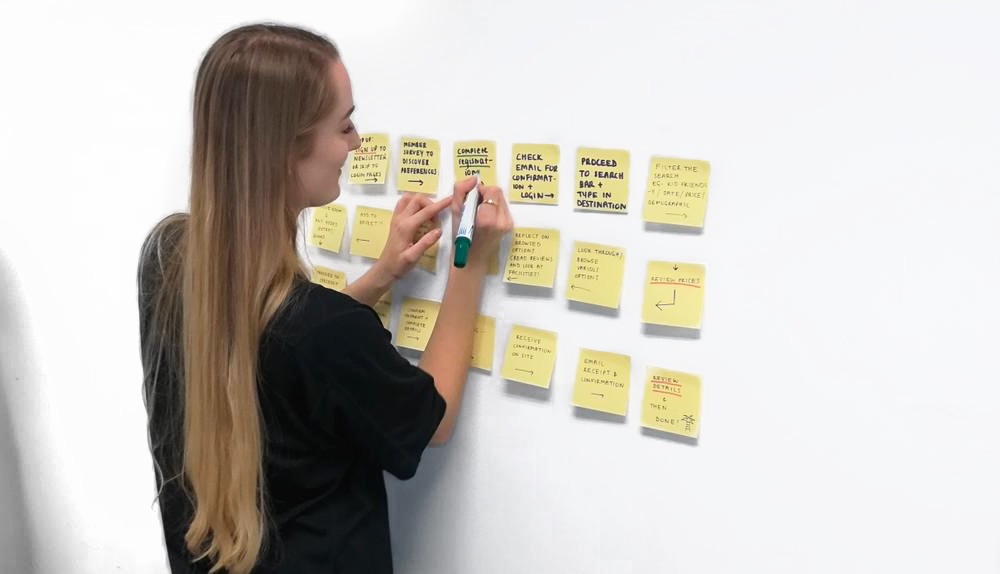 UP:
SIGN UP TO
NEWSLETTER
OR SKIP TO
LOGIN PAGES
→
MEMBER
SURVEY TO
DISCOVER
PREFERENCES
→
COMPLETE
registrat-
ion
CHECK
EMAIL FOR
CONFIRMAT-
ION +
LOGIN→
PROCEED
TO SEARCH
BAR +
TYPE IN
DESTINATION
FILTER THE
SEARCH
EG. KID FRIENDL
Y / DATE / PRICE /
DEMOGRAPHIC
→
ADD TO
←
REFLECT ON
BROWSED
OPTIONS
(READ REVIEWS
AND LOOK AT
FACILITIES)
←
LOOK THROUGH/
BROWSE
VARIOUS
OPTIONS
←
↓
REVIEW PRICES
←
CONFIRM
PAYMENT +
COMPLETE
DETAILS
→
RECEIVE
CONFIRMATION
ON SITE
→
EMAIL
RECEIPT &
CONFIRMATION
→
REVIEW
DETAILS
&
THEN
DONE!